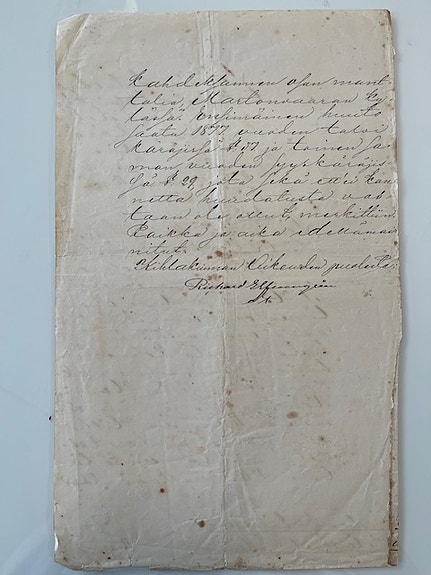 Kahdeksannen osan mant-
talia, Martonvaaran ky-
lässä. Ensimäinen huuto
saatu 1877 vuoden talvi
käräjissä § 77 ja toinen sa-
man vuoden syyskäräjis-
sä § 29, jota sekä ettei kan-
netta huudatusta vas-
taan ole ollut, merkittiin.
Paikka ja aika edellämai-
nitut.
Kihlakunnan Oikeuden puolesta:
Richard